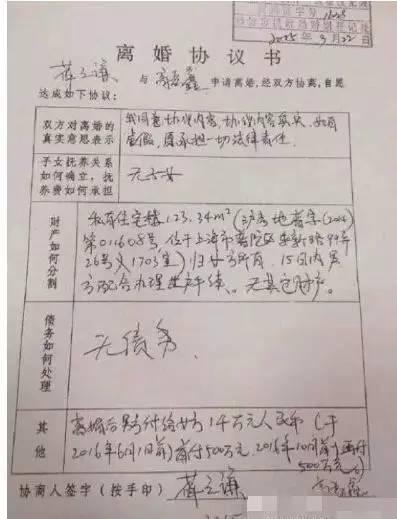 2015年9月22日
离婚协议书
薛之谦 与 高磊鑫 申请离婚,经双方协商,自愿
达成如下协议:
双方对离婚的
真实意思表示
我同意协议内容,协议内容真实,如有
虚假,愿承担一切法律责任
子女抚养关系
如何确立,抚
养费如何承担
无子女
财产如何分割
私有住宅楼123.34m²(沪房地普字(2004)
第011608号,位于上海市普陀区
26号 1703室)归女方所有,15日内男
方配合办理过户手续。无其它财产。
债务如何处理
无债务.
其他
离婚后男方付给女方1千万元人民币(于
2016年6月1日前)首付500万元,2016年10月前再付
500万元
协商人签字(按手印) 薛之谦 高磊鑫
2015